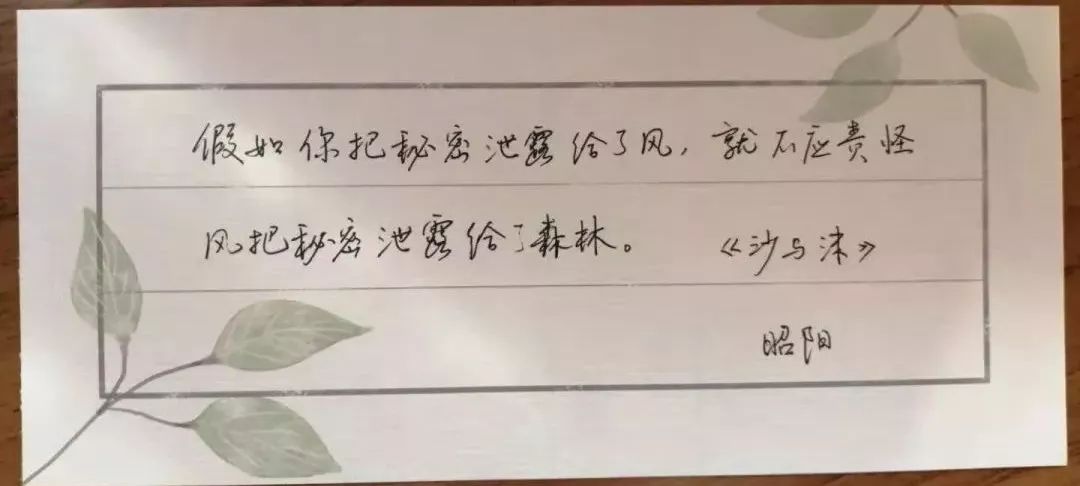 假如你把秘密泄露给了风,就不应责怪
风把秘密泄露给了森林。 《沙与沫》
昭阳